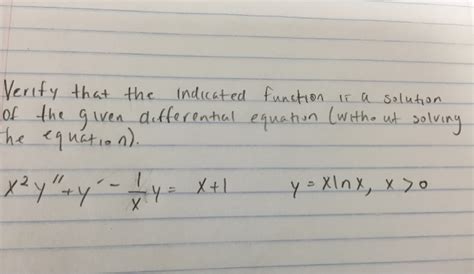 Verify that the indicated function is a solution
of the given differential equation (without solving
the equation).
x² y'' + y' - 1/x y = x+1 y = xlnx, x > 0